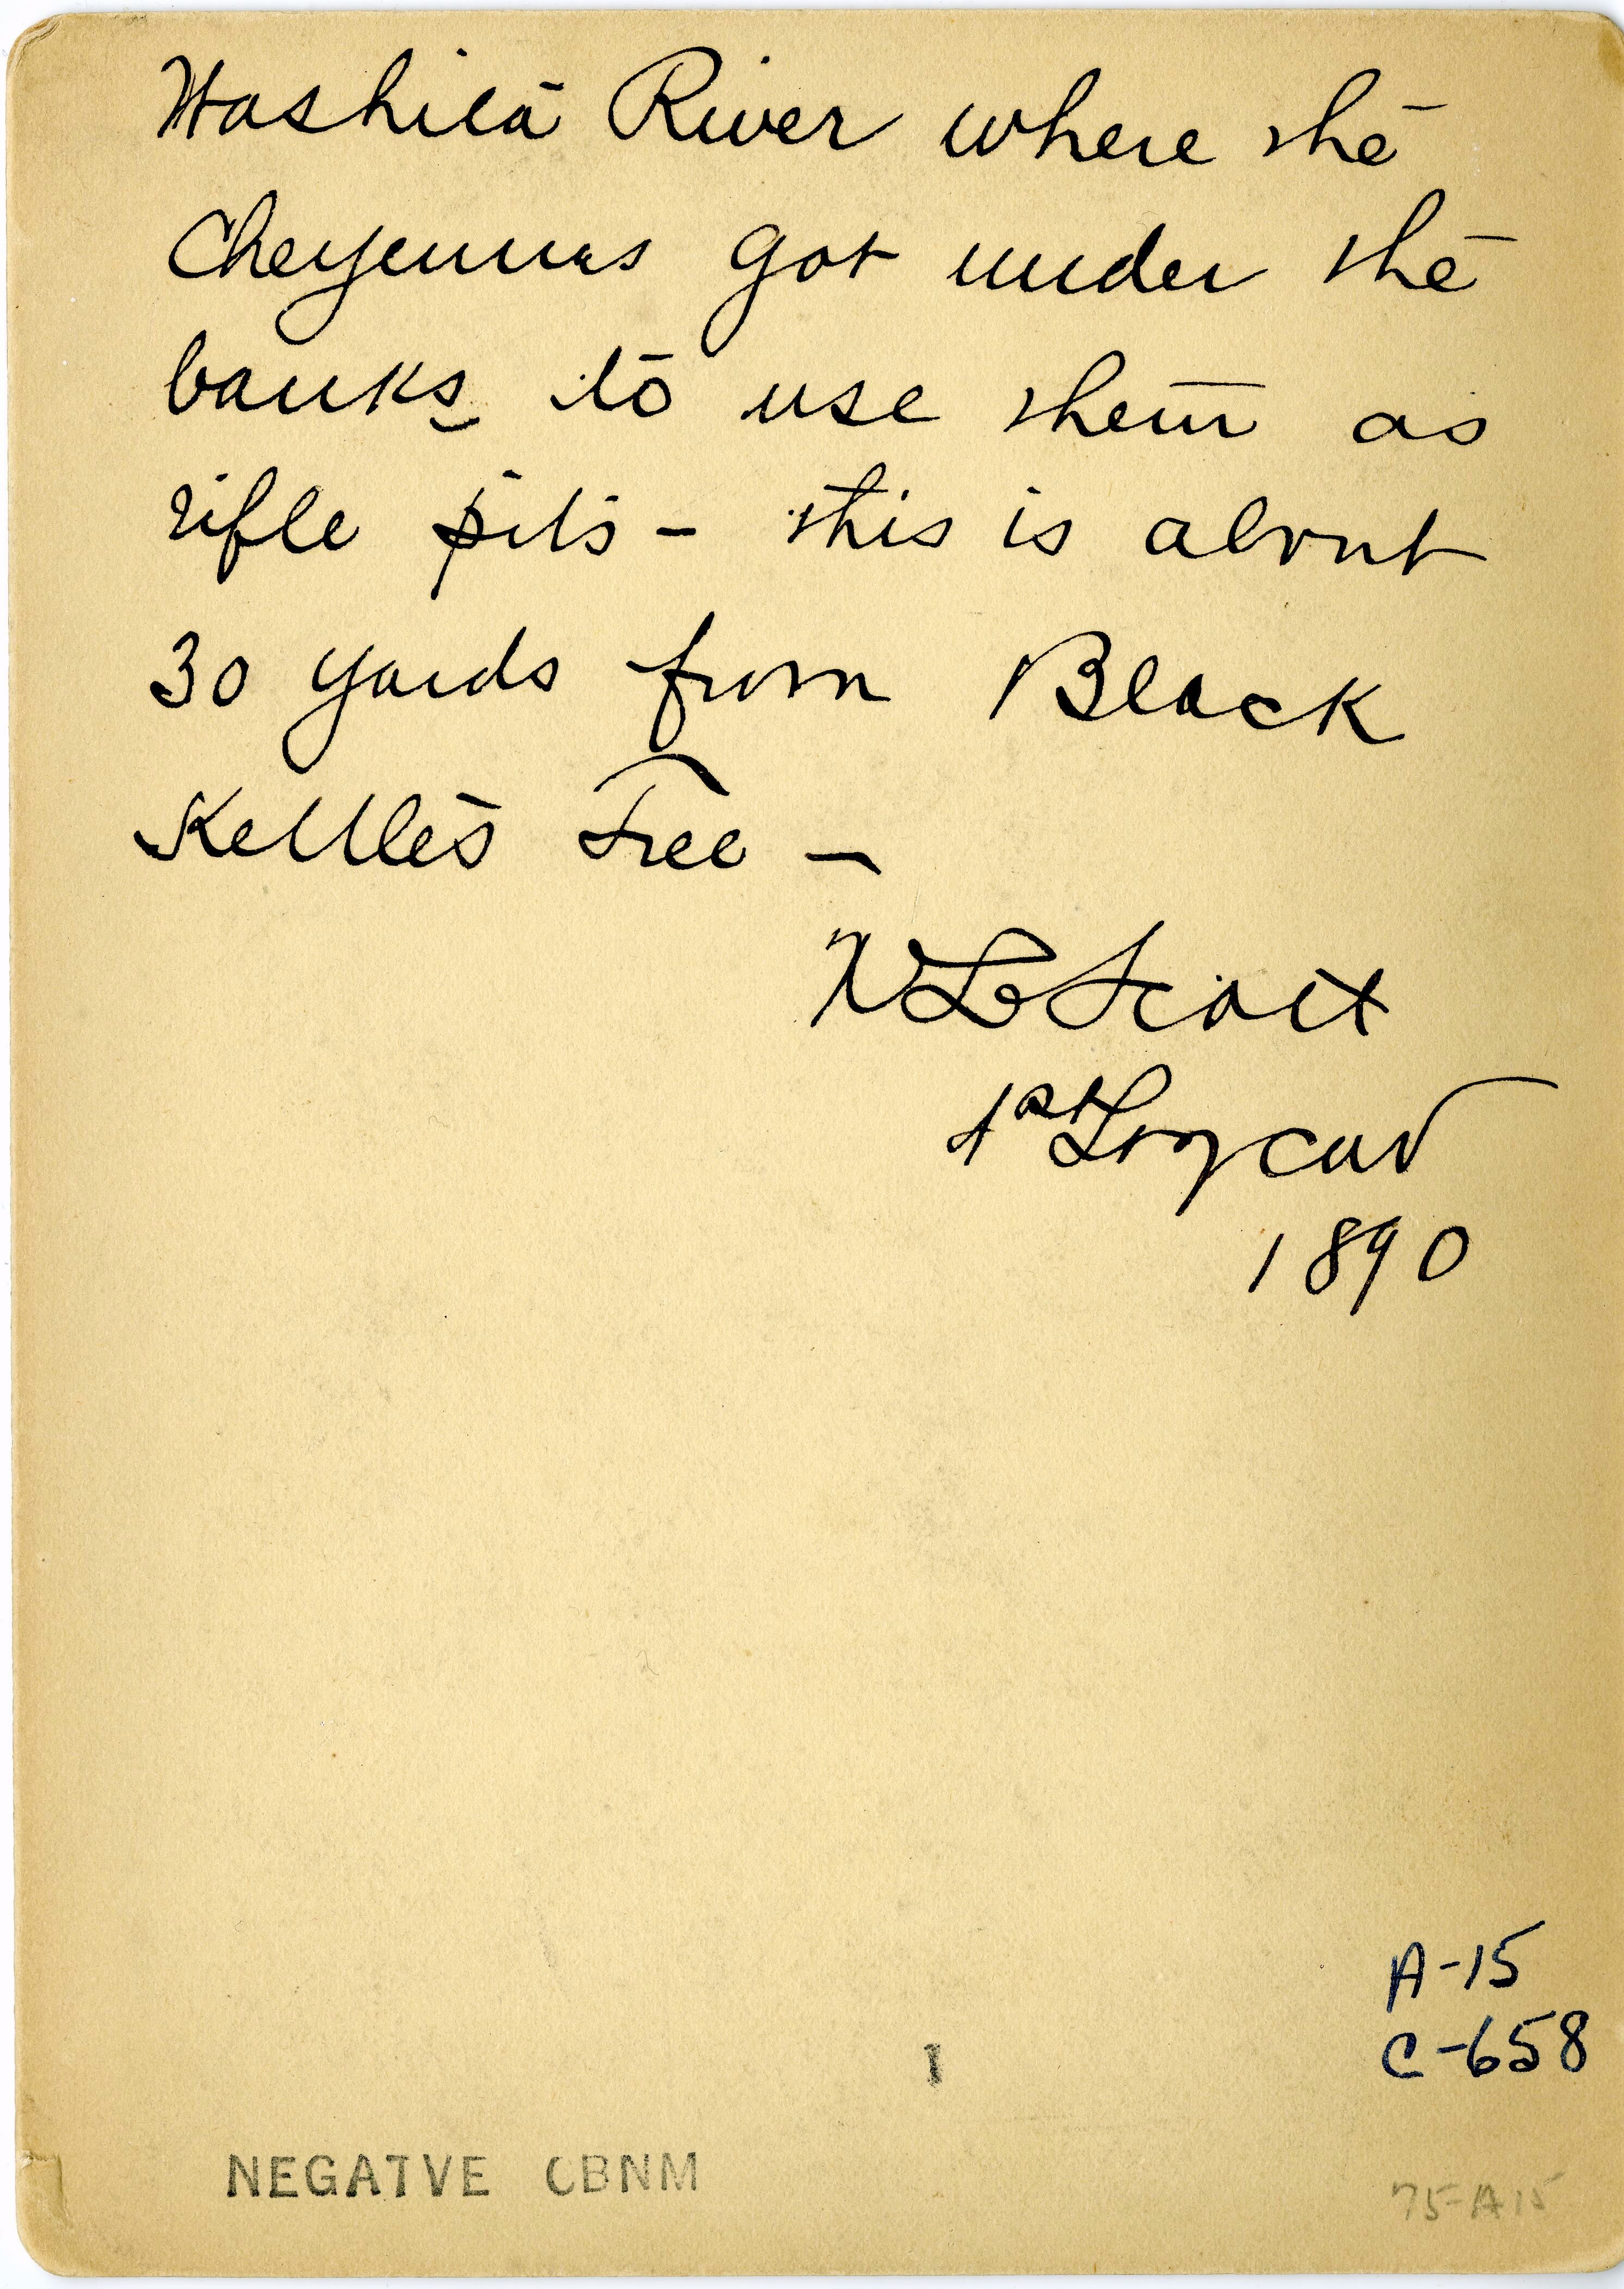 Washita River where the
Cheyennes got under the
banks to use them as
rifle pits - this is about
30 yards from Black
Kettle's Tree -
H L Scott
1st Lt 7 Cav
1890
A-15
C-658
1
NEGATVE CBNM
75-A15